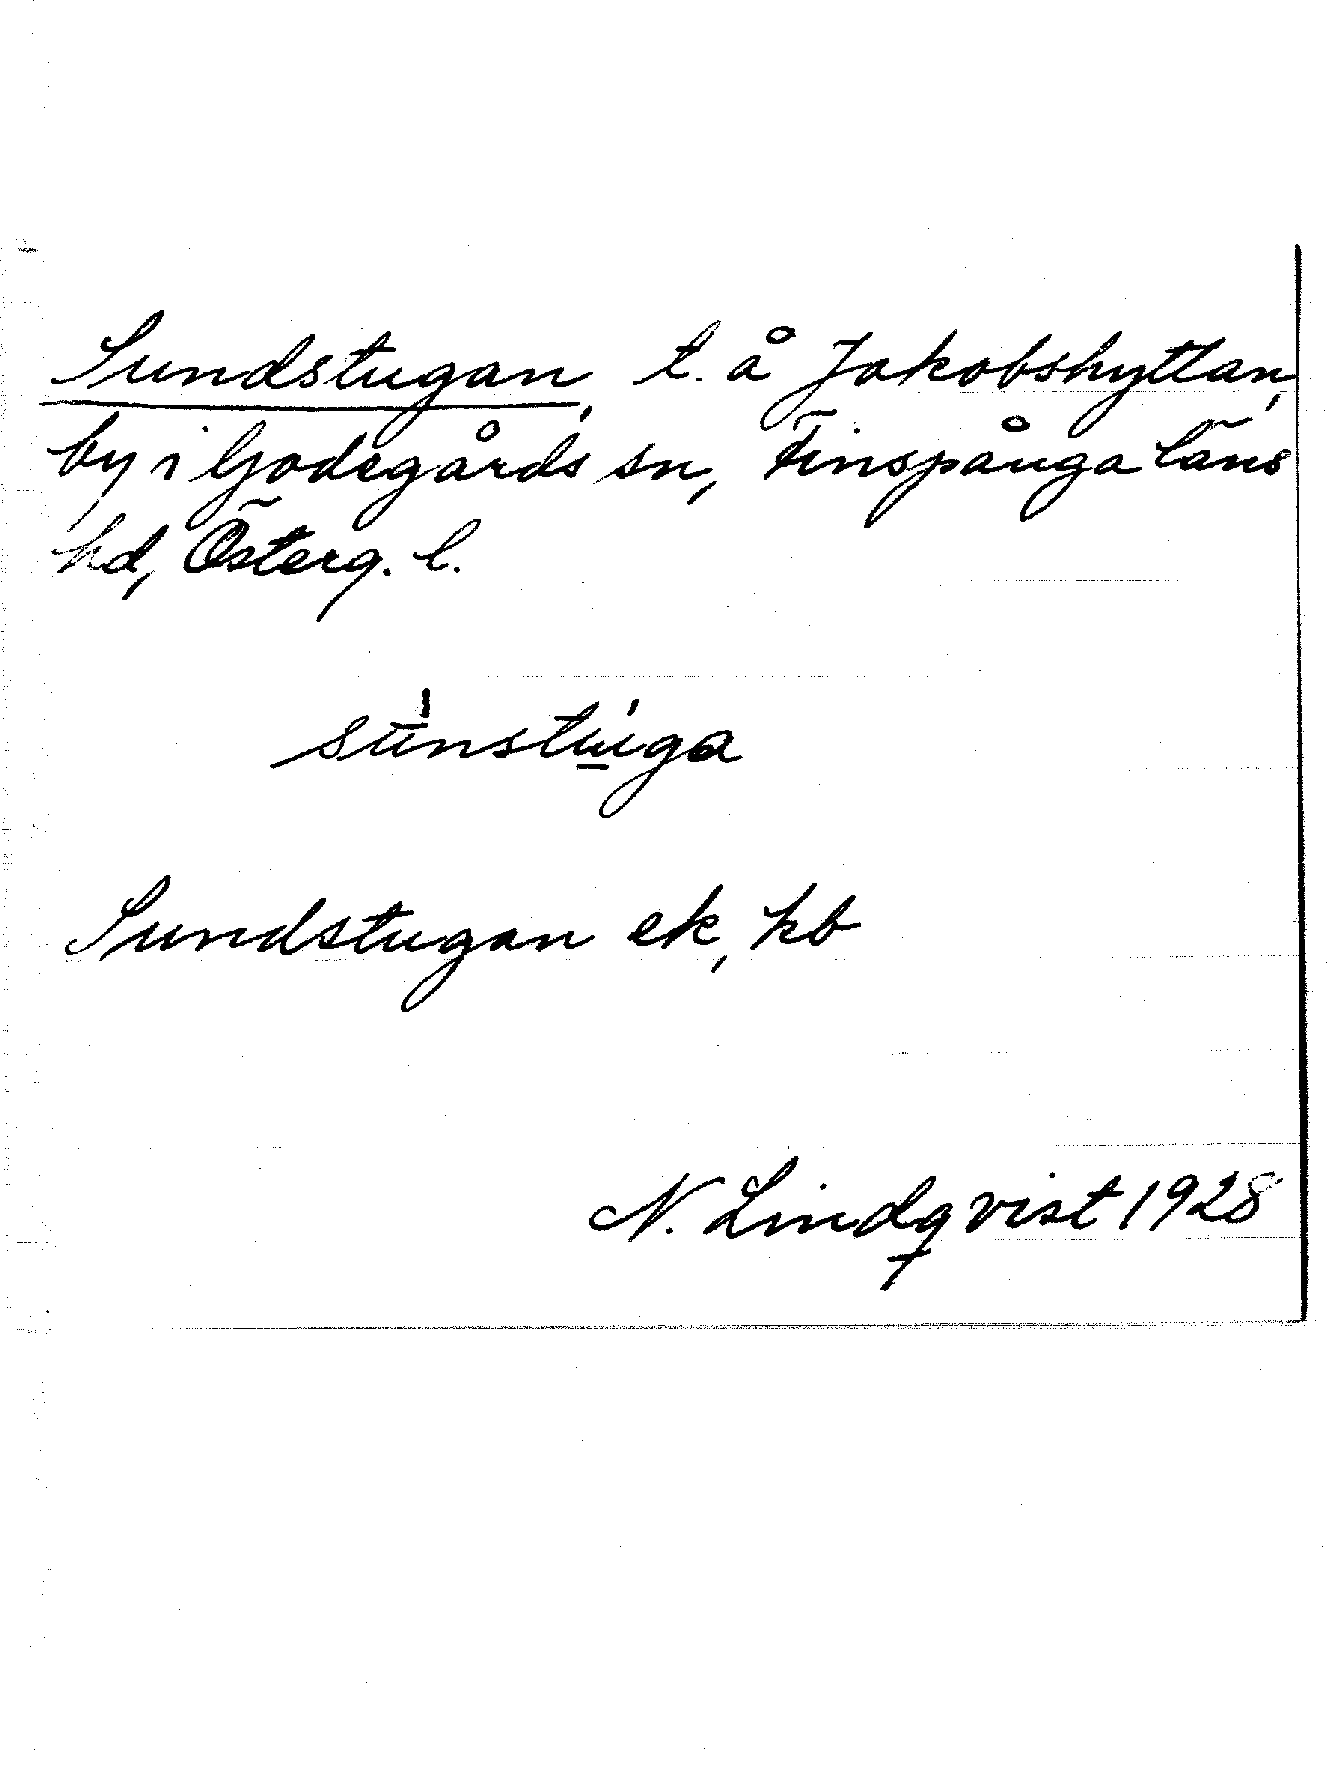 Sundstugan, t. å Jakobshyttan,
by i Godegårds sn, Finspånga läns
hd, Österg. l.
sùnstùga
Sundstugan ek, kb
N. Lindqvist 1928